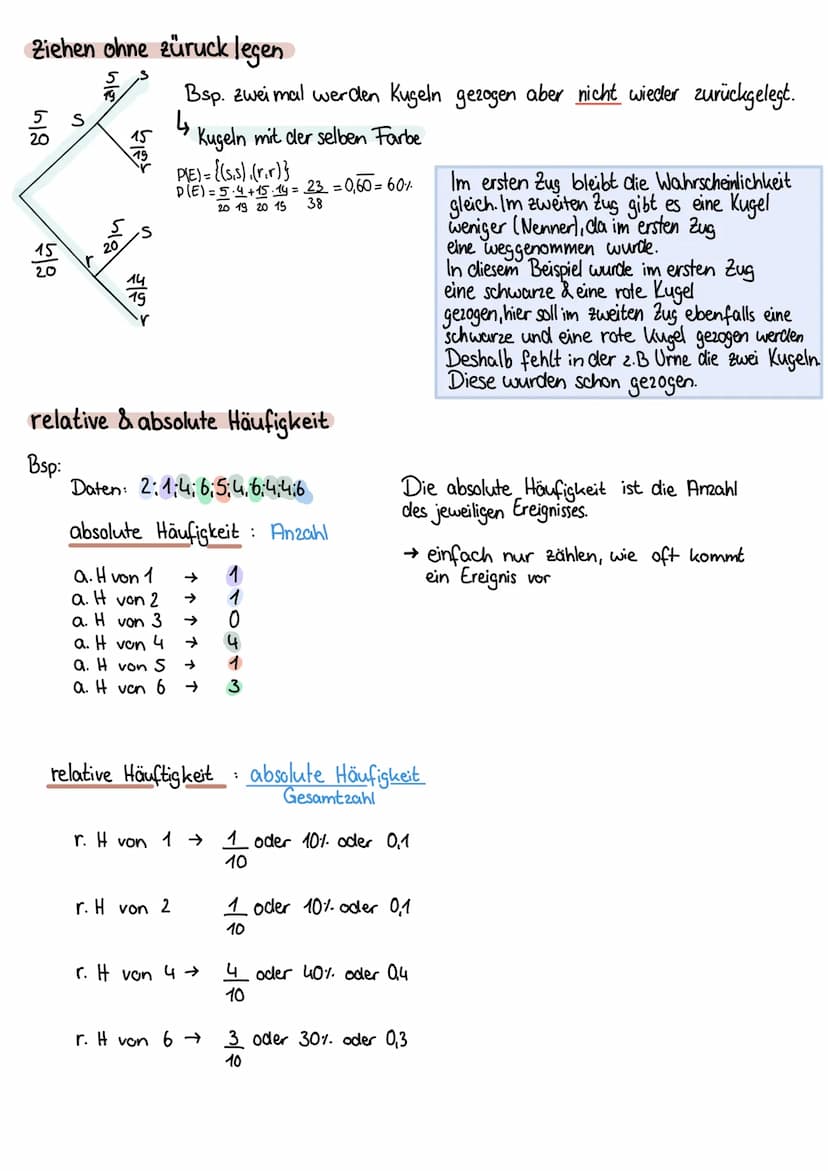 Ziehen ohne züruck legen
5/19 s
5/20 s
15/19 r
5/20 s
15/20 r
14/19
r
Bsp. zweimal werden Kugeln gezogen aber nicht wieder zurückgelegt.
↳ Kugeln mit der selben Farbe
P(E)={(s,s),(r,r)}
P(E)= 5/20 · 4/19 + 15/20 · 14/19 = 23/38 = 0,60 = 60%
Im ersten Zug bleibt die Wahrscheinlichkeit
gleich. Im zweiten Zug gibt es eine Kugel
weniger (Nenner), da im ersten Zug
eine weggenommen wurde.
In diesem Beispiel wurde im ersten Zug
eine schwarze & eine rote Kugel
gezogen, hier soll im zweiten Zug ebenfalls eine
schwarze und eine rote Kugel gezogen werden
Deshalb fehlt in der z.B Urne die zwei Kugeln.
Diese wurden schon gezogen.
relative & absolute Häufigkeit
Bsp:
Daten: 2;1;4;6;5;4,6;4;4;6
absolute Häufigkeit : Anzahl
a. H von 1 → 1
a. H von 2 → 1
a. H von 3 → 0
a. H von 4 → 4
a. H von 5 → 1
a. H von 6 → 3
Die absolute Häufigkeit ist die Anzahl
des jeweiligen Ereignisses.
→ einfach nur zählen, wie oft kommt
ein Ereignis vor
relative Häuftigkeit : absolute Häufigkeit
Gesamtzahl
r. H von 1 → 1/10 oder 10% oder 0,1
r. H von 2 1/10 oder 10% oder 0,1
r. H von 4 → 4/10 oder 40% oder 0,4
r. H von 6 → 3/10 oder 30% oder 0,3